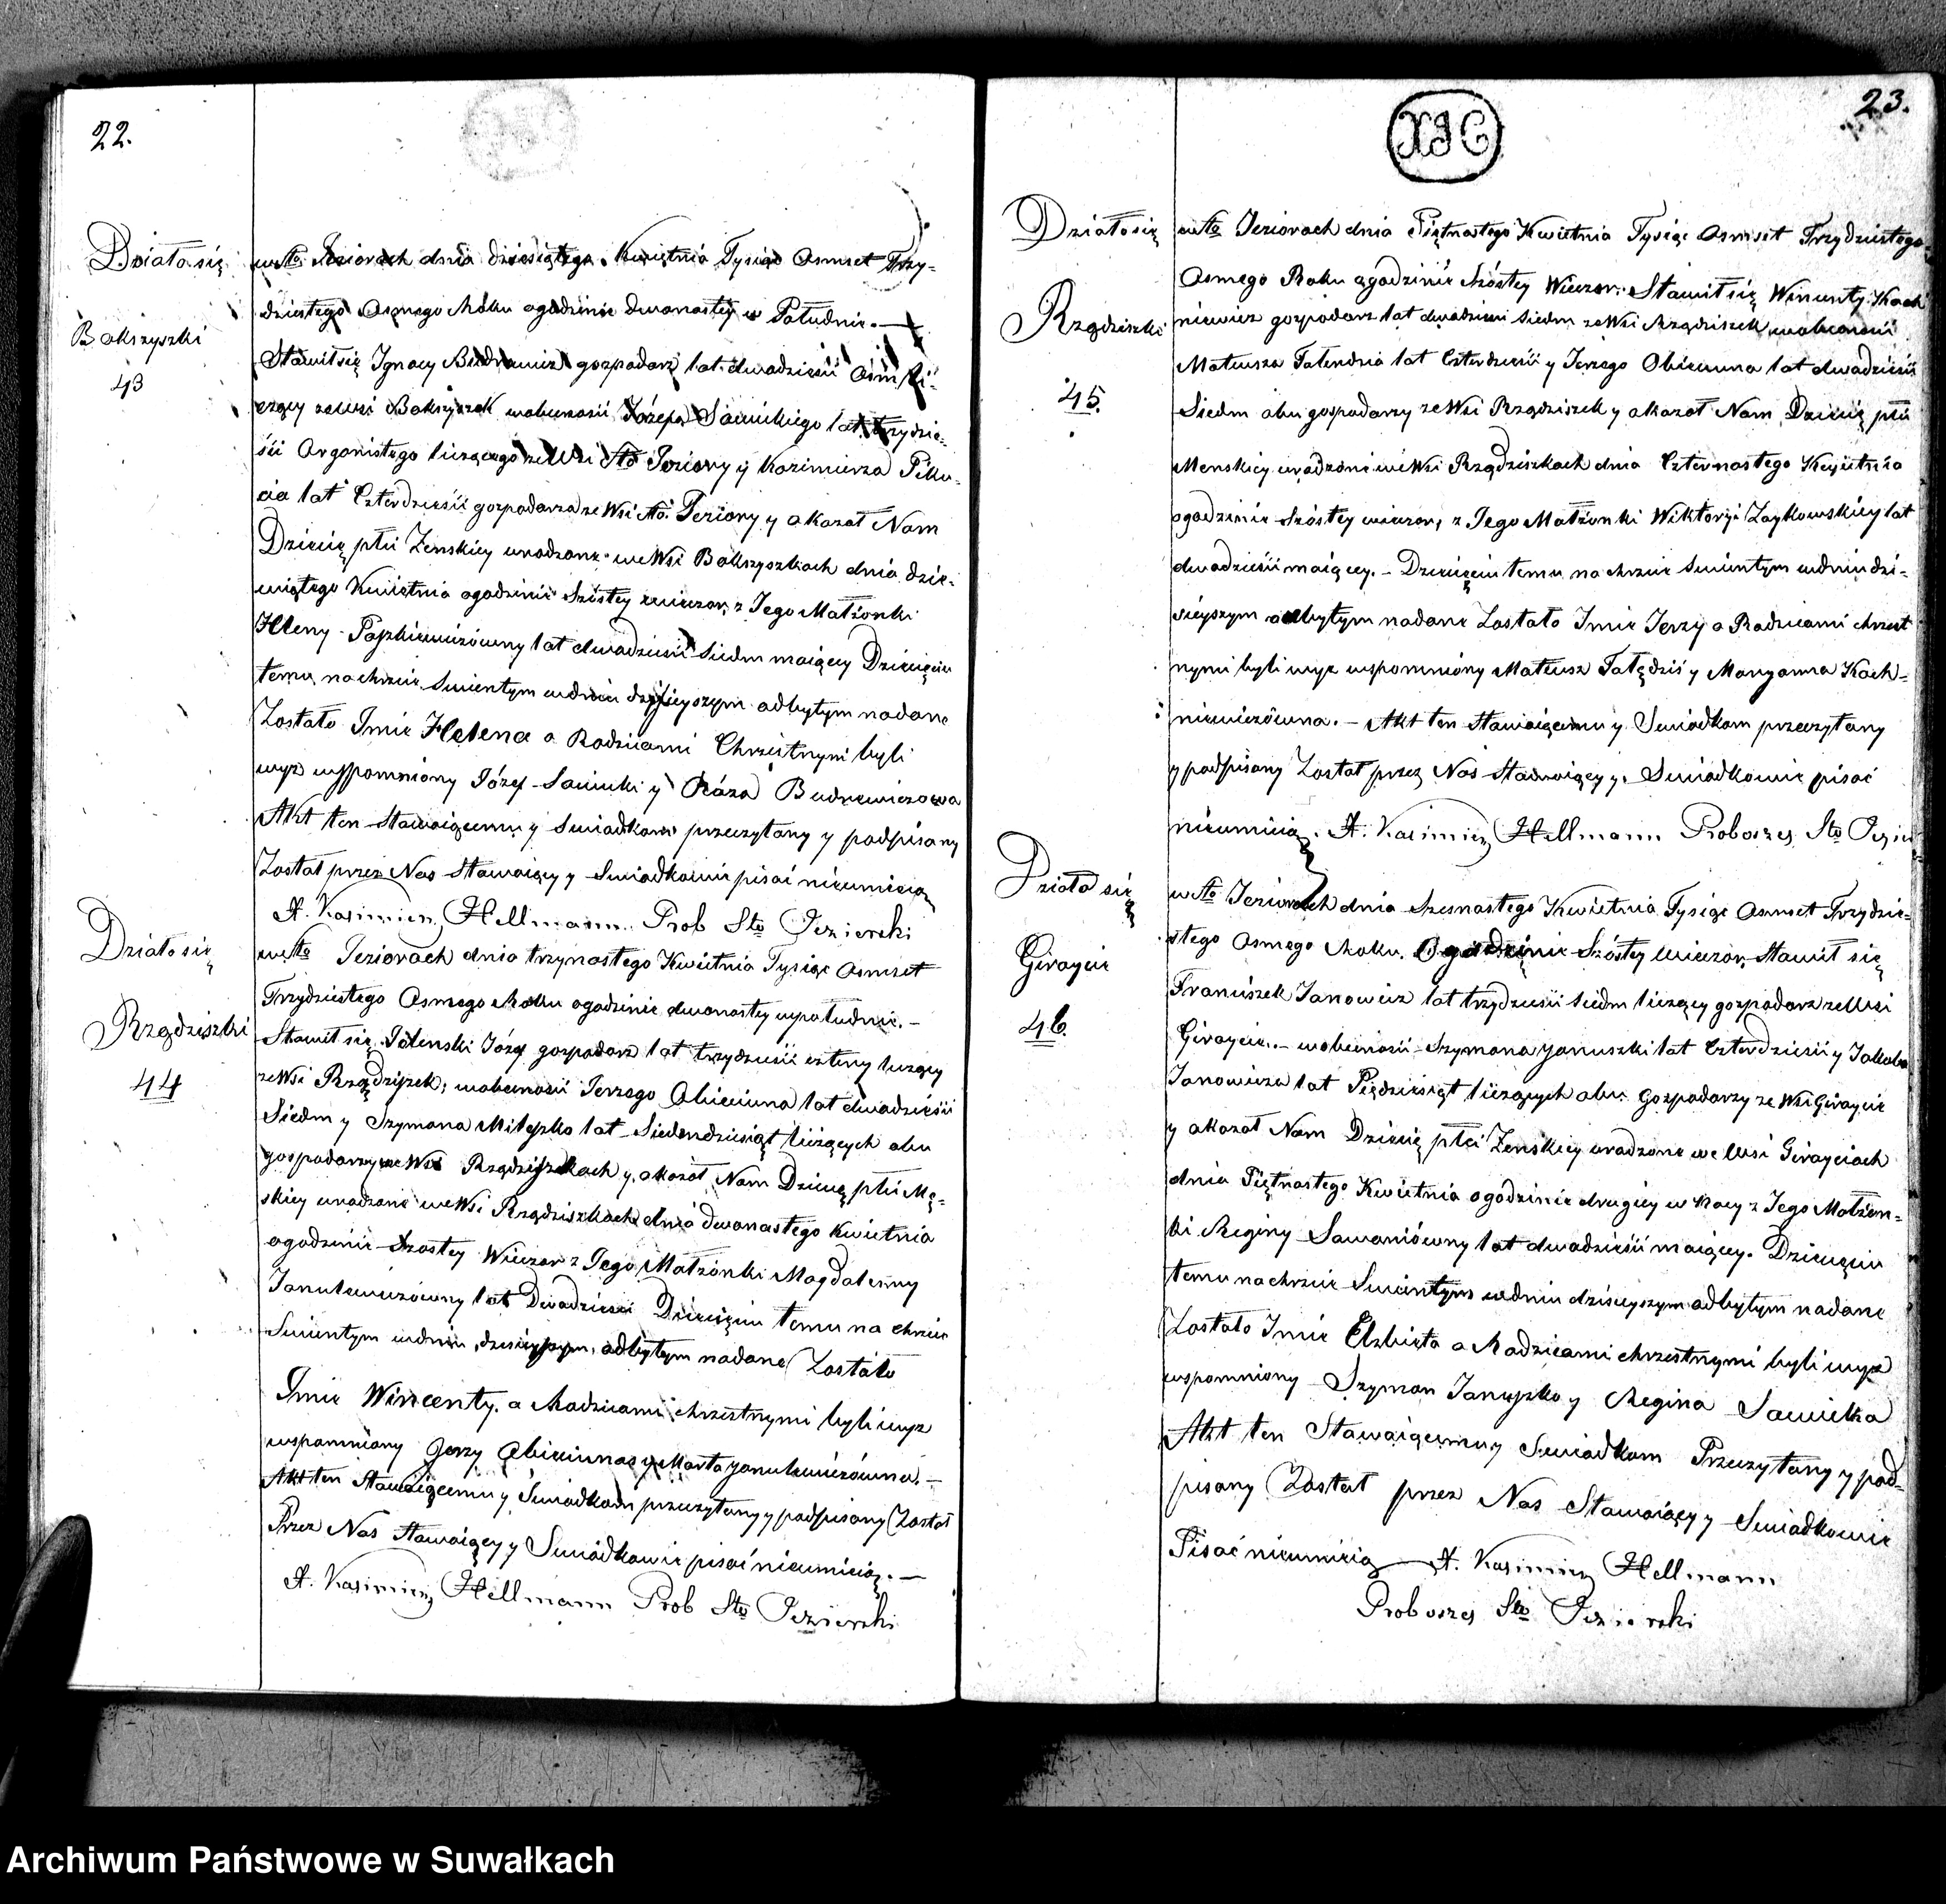 22.
Działo się
w Sto Jeziorach dnia dziesiątego Kwietnia Tysiąc Osmset Trzy-
Bokszyszki
43
dziestego Osmego Roku ogodzinie dwonastey w Południe. —
Stawił się Ignacy Budrewicz gospodarz lat dwadzieścii Ośm li-
czący zewsi Bokszyszek wobecnosii Józefa Sawickiego lat trzydzie-
ści Organistego liczącego ze Wsi Sto Jeziory y Kazimierza Piku-
cia lat Czterdzieścii gospodarza ze Wsi Sto. Jeziory y okazał Nam
Dziecię płci Zenskiey urodzone we Wsi Bokszyszkach dnia dzie-
wiątego Kwietnia ogodzinie Szóstey wieczor, z Jego Małżonki
Heleny Paszkiewiczówny lat dwadzieścii Siedm maiącey Dziecięciu
temu na chrzcie Swientym wdniu dzisieyszym odbytym nadane
Zostało Imie Helena a Rodzicami Chrzestnymi byli
wyz wspomniony Józef Sawicki y Róza Budrewiczowa
Akt ten Stawaiącemu y Swiadkom przeczytany y podpisany
Zostal przez Nas Stawaiący y Swiadkowie pisać nieumieią
X. Kazimierz Hellmann Prob Sto Jezierski
Działo się
w Sto Jeziorach dnia trzynastego Kwietnia Tysiąc Osmset
Rządziszki
44
Trzydziestego Osmego Roku ogodzinie dwonastey wpołudnie. —
Stawił się Józef gospodarz lat trzydzieścii cztery liczący
ze Wsi Rządziszek, wobecnosii Jerzego Obiciuna lat dwadzieścii
Siedm y Szymona Mileszko lat Siedmdziesiąt liczących obu
gospodarzy we Wsi Rządziszkach y okazał Nam Dziecię płci Mę-
skiey urodzone we Wsi Rządziszkach dnia dwonastego Kwietnia
ogodzinie Szostey Wieczor z Jego Małżonki Magdaleny
Janulewiczowny lat Dwadzieścii Dziecięciu temu na chrzcie
Swientym wdniu dzisieyszym, odbytym nadane Zostało
Imie Wincenty. a Rodzicami chrzestnymi byli wyz
wspomniony Jerzy Obiciunas y Marta Janulewiczówna. —
Akt ten Stawaiącemu y Swiadkom przeczytany y podpisany Zostal
Przez Nas Stawaiący y Swiadkowie pisać nieumieią. —
X. Kazimierz Hellmann Prob Sto Jezierski
23.
Działo się
w Sto Jeziorach dnia Piętnastego Kwietnia Tysiąc Osmset Trzydziestego
Rządziszki
45.
Osmego Roku ogodzinie Szóstey Wieczor. Stawił się Wincenty Koch
niewicz gospodarz lat dwadzieści Siedm ze Wsi Rządziszek wobecnosii
Mateusza Talendzia lat Czterdzieścii y Jerzego Obiciuna lat dwadzieścii
Siedm obu gospodarzy ze Wsi Rządziszek y okazał Nam Dziecię płci
Menskiey urodzone we Wsi Rządziszkach dnia Czternastego Kwietnia
ogodzinie Szóstey wieczor, z Jego Małżonki Wiktoryi Zaykowskiey lat
dwadzieścii maiącey. – Dziecięciu temu na chrzcie Swientym wdniu dzi-
sieyszym odbytym nadane Zostało Imie Jerzy a Rodzicami chrzest
nymi byli wyz wspomniony Mateusz Talędziś y Maryanna Koch-
niewiczówna. – Akt ten Stawaiącemu y Swiadkom przeczytany
y podpisany Zostal przez Nas Stawaiący y Swiadkowie pisać
nieumieią. X. Kazimierz Hellmann Proboszcz Sto Jezier
Działo się
w Sto Jeziorach dnia Szesnastego Kwietnia Tysiąc Osmset Trzydzie-
Giraycie
46.
stego Osmego Roku. Ogodzinie Szóstey Wieczor, Stawił się
Franciszek Janowicz lat trzydzieścii Siedm liczący gospodarz ze Wsi
Giraycie. – wobecnosii Szymona Januszki lat Czterdzieścii y Jakuba
Janowicza lat Pięćdziesiąt liczących obu Gospodarzy ze Wsi Giraycie
y okazał Nam Dziecię płci Zenskiey urodzone we Wsi Girayciach
dnia Piętnastego Kwietnia ogodzinie drugiey w Nocy z Jego Małżon-
ki Reginy Sawaniówny lat dwadzieścii maiącey. Dziecięciu
temu na chrzcie Swientym wdniu dzisieyszym odbytym nadane
Zostało Imie Elzbieta a Rodzicami chrzestnymi byli wyz
wspomniony Szymon Januszko y Regina Sawicka
Akt ten Stawaiącemu y Swiadkom Przeczytany y pod-
pisany Zostal przez Nas Stawaiący y Swiadkowie
Pisać nieumieią — X. Kazimierz Hellmann
Proboszcz Sto Jezierski
Archiwum Państwowe w Suwałkach